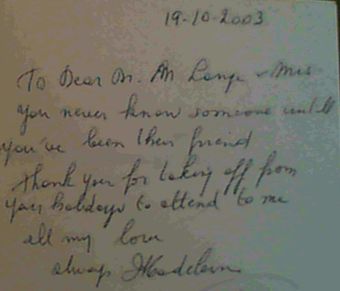 19-10-2003
To Dear Dr. M Lange & Mrs
you never know someone untill
you've been their friend
thank you for taking off from
your holidays to attend to me
all my love
always Madeleine